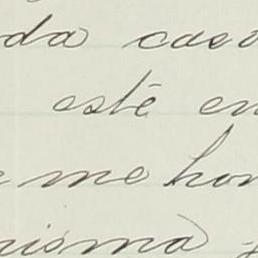 da caso
esté en
me hon
misma